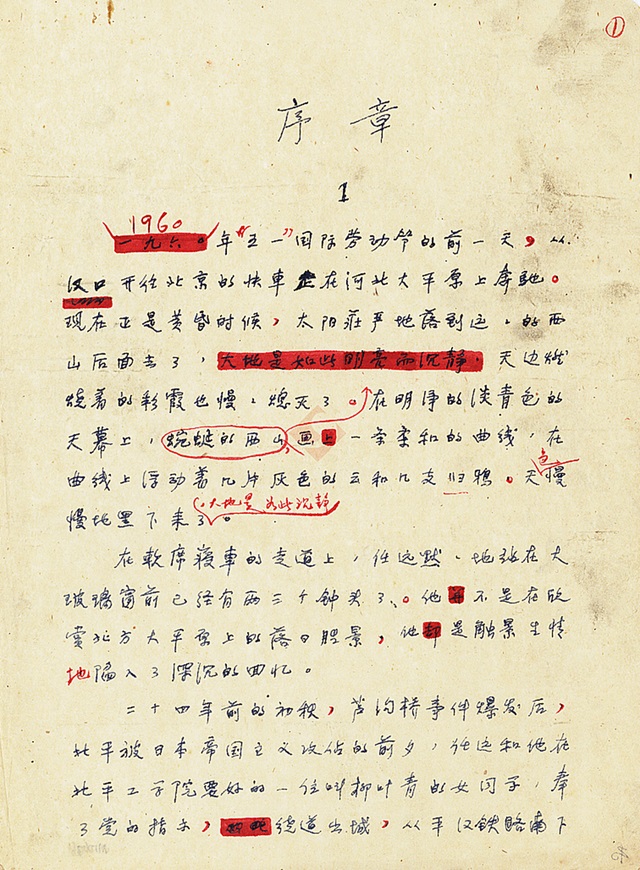 ①
序章
1
1960
一九六〇年“五一”国际劳动节的前一天，从
汉口开往北京的快車在河北大平原上奔馳。
现在正是黄昏时候，太阳莊严地落到远、的西
山后面去了，大地是如此明亮而沉静，天边燃
燒着的彩霞也慢、熄灭了。在明净的淡青色的
天幕上，蜿蜒的西山，画上一条柔和的曲线，在
曲线上浮动着几片灰色的云和几支归鴉。天色慢
慢地黑下来了。
，大地是如此沉静
在軟席寝車的走道上，任远默、地站在大
玻璃窗前已经有两三个钟头了、。他不是在欣
赏北方大平原上的落日胜景，他却是触景生情
地陷入了深沉的回忆。
二十四年前的初秋，芦沟桥事件爆发后，
北平被日本帝国主义攻佔的前夕，任远和他在
北平工学院要好的一位叫柳叶青的女同学，奉
了党的指示，绕道出城，从平汉铁路南下